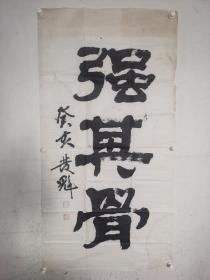 强其骨
癸亥